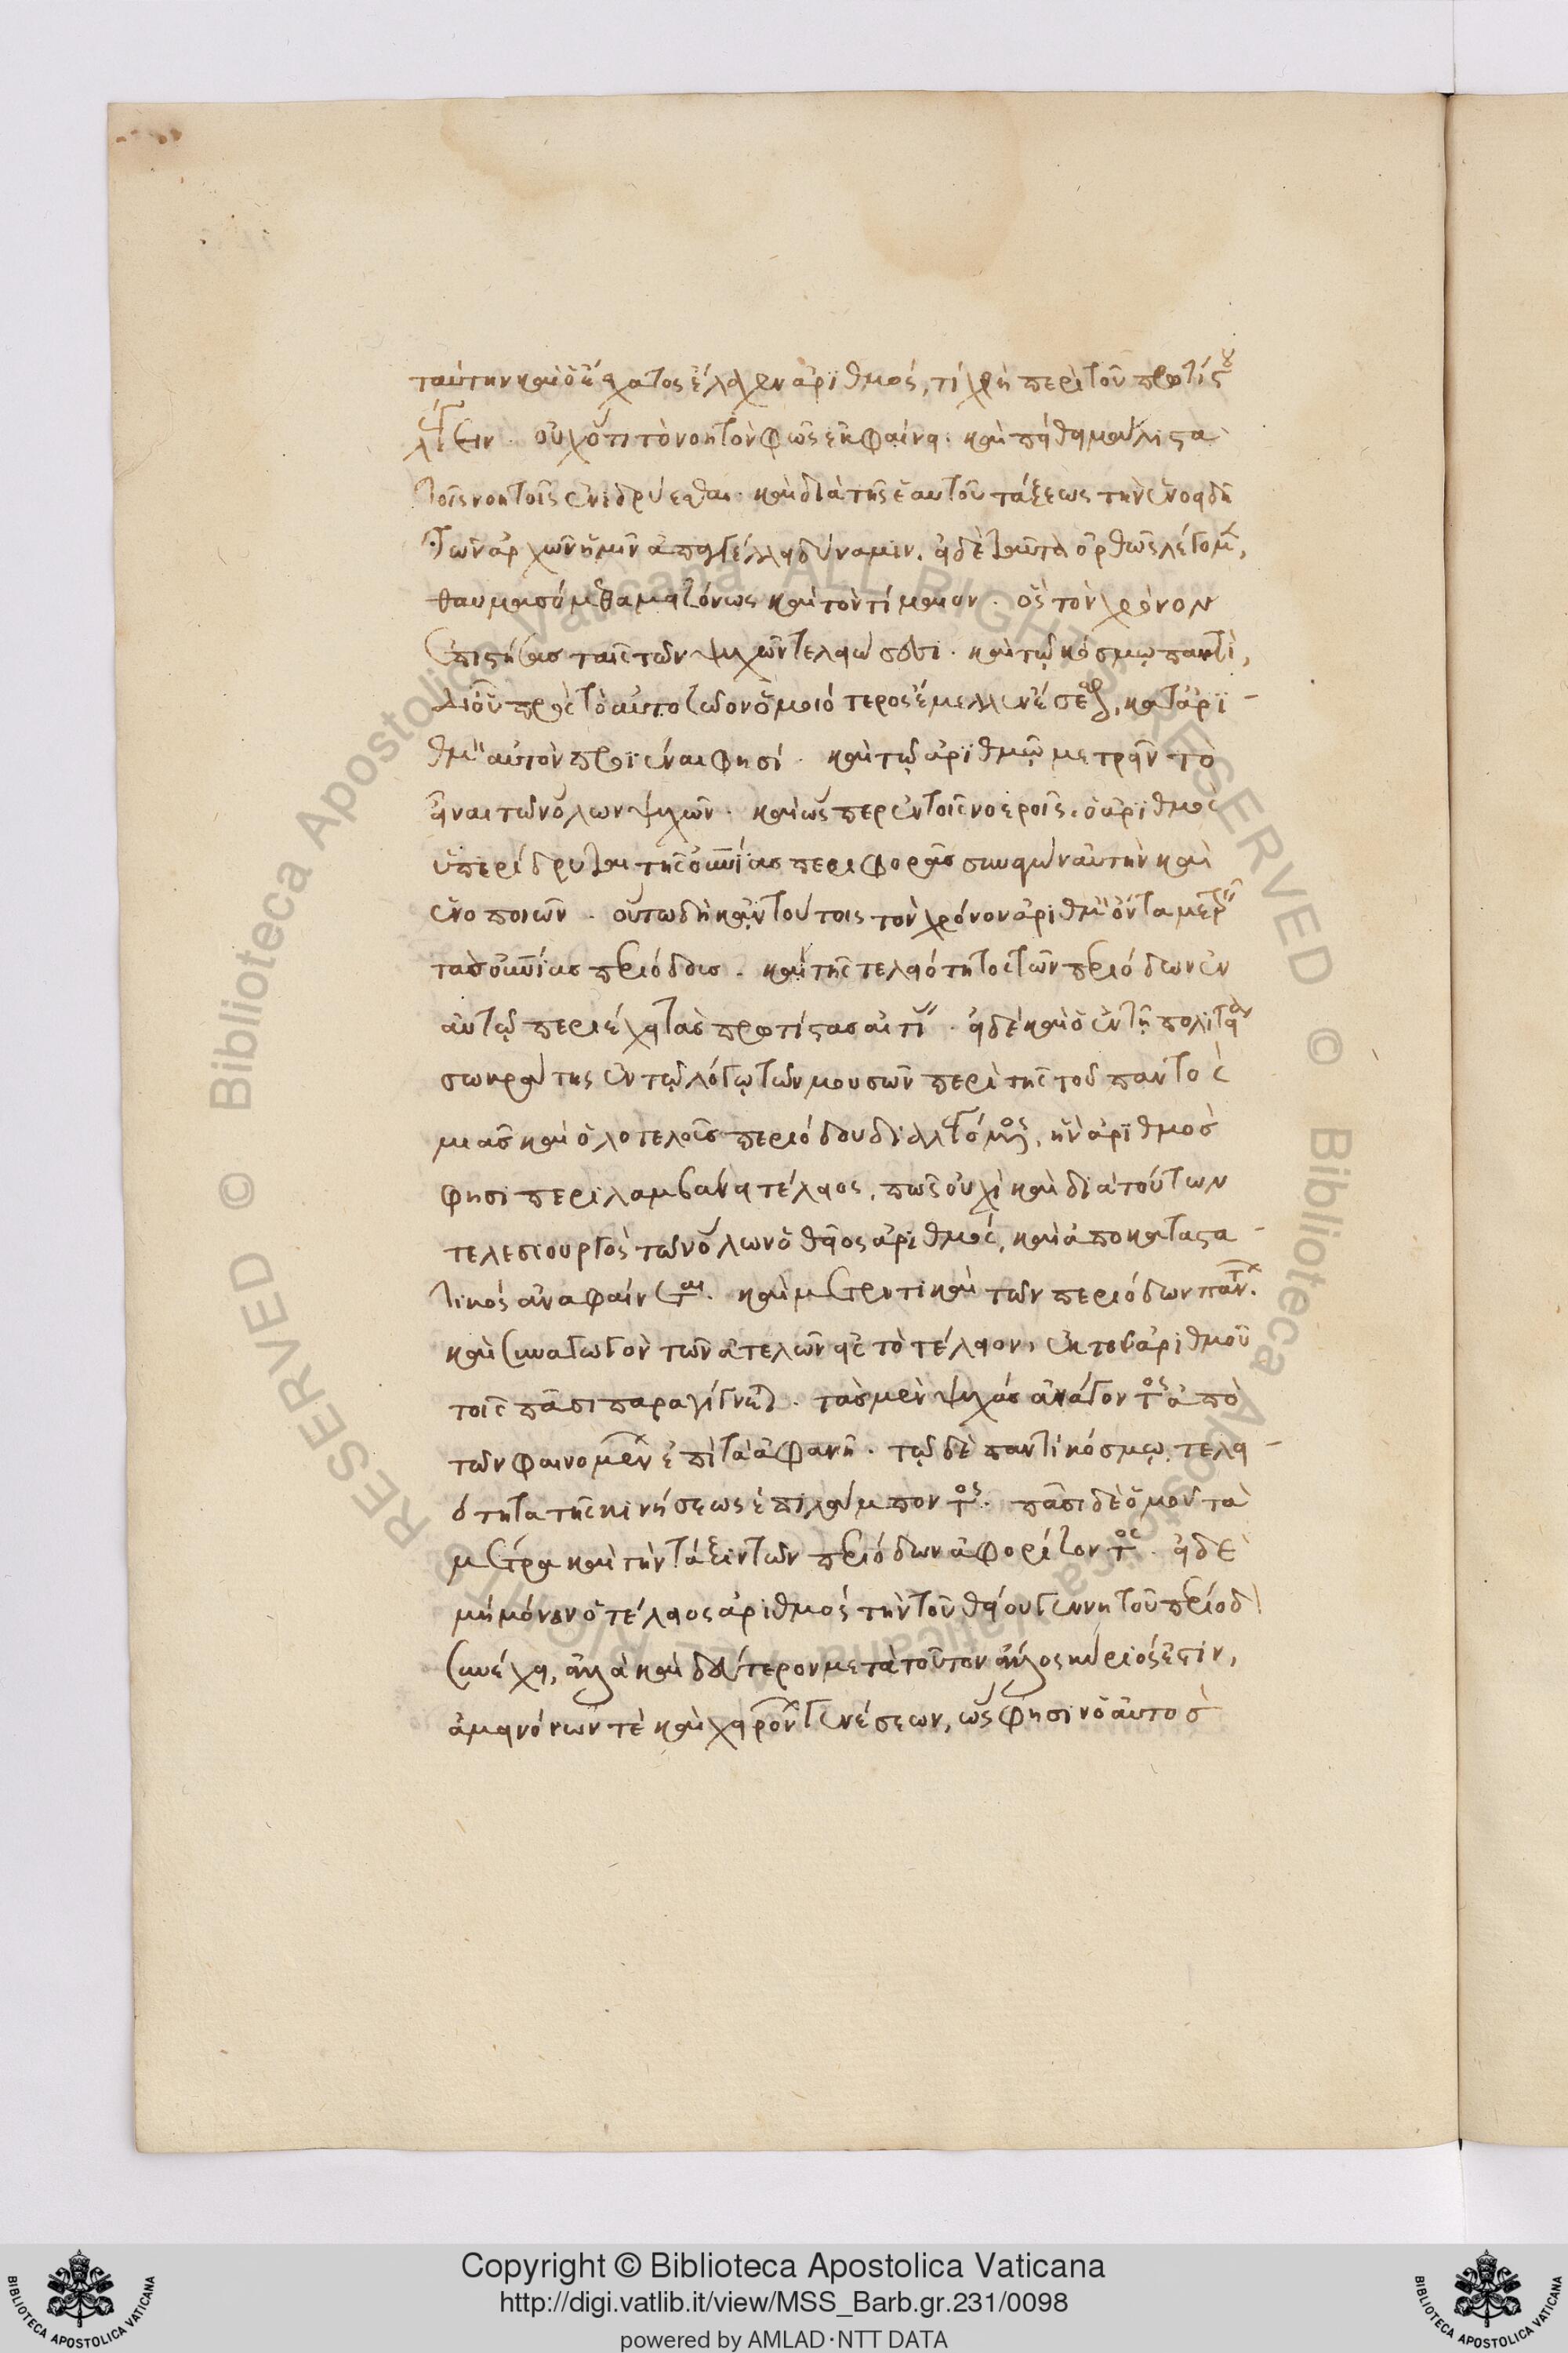 ταύτην καὶ ὁ ἔσχατος ἔλαχεν ἀριθμός, τί χρὴ περὶ τοῦ πρωτίστου
λέγειν. οὐχ ὅτι τὸ νοητὸν φῶς ἐκφαίνει. καὶ πείθει μάλιστα
τοῖς νοητοῖς ἐνιδρύεσθαι. καὶ διὰ τῆς ἑαυτοῦ τάξεως τὴν ἑνοειδῆ
τῶν ἀρχῶν ἡμῖν ἀπαγγέλλει δύναμιν. εἰ δὲ ταῦτα ὀρθῶς λέγομεν,
θαυμασόμεθα μειζόνως καὶ τὸν τίμαιον. ὃς τὸν χρόνον
ἐπιστήσας ταῖς τῶν ψυχῶν τελειώσεσι. καὶ τῷ κόσμῳ παντὶ,
δι' οὗ πρὸς τὸ αὐτοζῶον ὁμοιότερος ἔμελλεν ἔσεσθαι, κατ' ἀρι-
θμὸν αὐτὸν προϊέναι φησί. καὶ τῷ ἀριθμῷ μετρεῖν τὸ
εἶναι τῶν ὅλων ψυχῶν. καὶ ὥσπερ ἐν τοῖς νοεροῖς, ὁ ἀριθμὸς
ὑπερίδρυται τῆς οὐρανίας περιφορᾶς συνάγων αὐτὴν καὶ
ἑνοποιῶν. οὕτω δὴ κἀν τούτοις τὸν χρόνον ἀριθμὸν ὄντα μετρεῖν
τὰς οὐρανίας περιόδους. καὶ τῆς τελειότητος τῶν περιόδων ἐν
αὐτῷ περιέχει τὰς πρωτίστας αἰτίας. εἰ δὲ καὶ ὁ ἐν τῇ πολιτείᾳ
σωκράτης ἐν τῷ λόγῳ τῶν μουσῶν περὶ τῆς τοῦ παντὸς
μιᾶς καὶ ὁλοτελοῦς περιόδου διαλεγόμενος, ἣν ἀριθμὸς
φησὶ περιλαμβάνει τέλειος, πῶς οὐχὶ καὶ διὰ τούτων
τελεσιουργὸς τῶν ὅλων ὁ θεῖος ἀριθμὸς, καὶ ἀποκατάστα-
τικὸς ἀναφαίνεται. καὶ μετρητικὴ τῶν περιόδων πάντων.
καὶ συναγωγὸν τῶν ἀτελῶν εἰς τὸ τέλειον, ἐκ τοῦ ἀριθμοῦ
τοῖς πᾶσι παραγίγνεται. τὰς μὲν ψυχὰς ἀνάγοντος ἀπὸ
τῶν φαινομένων ἐπὶ τὰ ἀφανῆ. τῷ δὲ παντὶ κόσμῳ, τελει-
ότητα τῆς κινήσεως ἐπιλάμποντος. πᾶσι δὲ ὁμοῦ τὰ
μέτρα καὶ τὴν τάξιν τῶν περιόδων ἀφορίζοντος. εἰ δὲ
μὴ μόνον ὁ τέλειος ἀριθμὸς τὴν τοῦ θείου γεννητοῦ περίοδον
συνέχει, ἀλλὰ καὶ δεύτερον μετὰ τοῦτον ἄλλος κύριός ἐστιν,
ἀμεινόνων τὲ καὶ χειρόνων γενέσεων, ὥς φησιν ὁ αὐτὸς
Copyright © Biblioteca Apostolica Vaticana
http://digi.vatlib.it/view/MSS_Barb.gr.231/0098
powered by AMLAD·NTT DATA